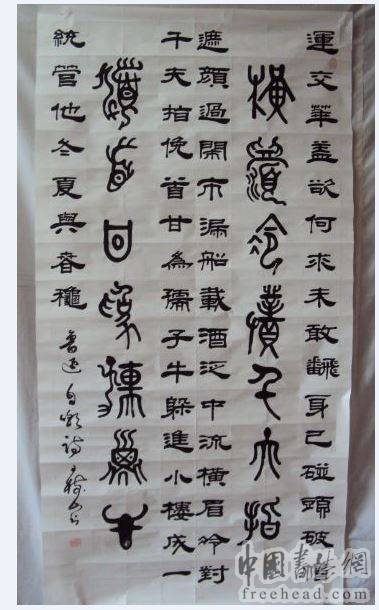 運交華盖欲何求未敢翻身已碰頭破帽
橫眉冷對千夫指
遮顔過鬧市漏船載酒泛中流橫眉冷對
千夫指俛首甘為孺子牛躲進小樓成一
俯首甘為孺子牛
統管他冬夏與春龝 魯迅自嘲詩
中國書法網
freehead.com